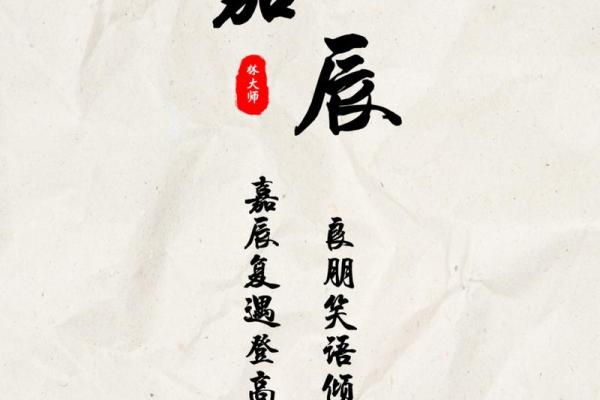 嘉
辰
林大师
良朋笑语倾
嘉辰复遇登高